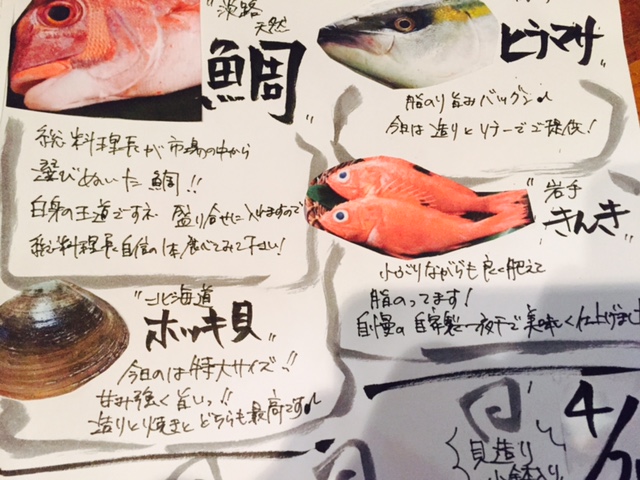 "淡路
天然
鯛"
総料理長が市場の中から
選びぬいた鯛!!
白身の王道ですネ 盛り合せに入れますので
総料理長自信の一体!食べてみて下さい!
ヒラマサ"
脂のり旨みバツグン♪
今日は造りとリナーでご提供!
"岩手
きんき"
小ぶりながらも良く肥えて
脂のってます!
自慢の自家製一夜干で美味しく仕上げました
"北海道
ホッキ貝"
今日のは特大サイズ!!
甘み強く旨いっ!!
造りと焼きとどちらも最高です♪
4/
貝造り